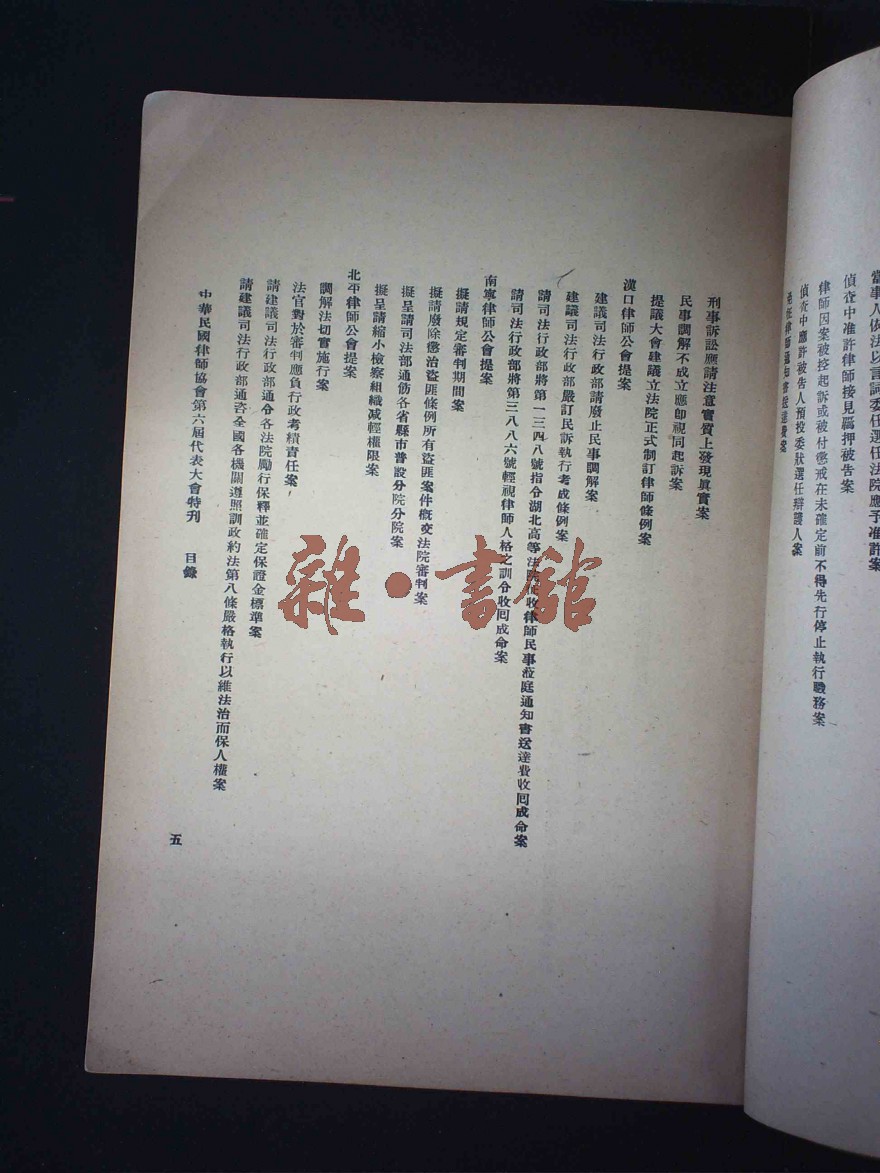 當事人依法以言詞委任選任法院應予准許案
偵查中准許律師接見羈押被告案
律師因案被控起訴或被付懲戒在未確定前不得先行停止執行職務案
偵查中應許被告人預投委狀選任辯護人案
律師通知書送達費案
刑事訴訟應請注意實質上發現眞實案
民事調解不成立應卽視同起訴案
提議大會建議立法院正式制訂律師條例案
漢口律師公會提案
建議司法行政部請廢止民事調解案
建議司法行政部嚴訂民訴執行考成條例案
請司法行政部將第一三四八號指令湖北高等法院徵收律師民事蒞庭通知書送達費收囘成命案
請司法行政部將第三八八六號輕視律師人格之訓令收囘成命案
南寧律師公會提案
擬請規定審判期間案
擬請廢除懲治盜匪條例所有盜匪案件概交法院審判案
擬呈請司法部通飭各省縣市普設分院分院案
擬呈請縮小檢察組織減輕權限案
北平律師公會提案
調解法切實施行案
法官對於審判應負行政考績責任案
請建議司法行政部通令各法院勵行保釋並確定保證金標準案
請建議司法行政部通咨全國各機關遵照訓政約法第八條嚴格執行以維法治而保人權案
中華民國律師協會第六屆代表大會特刋 目錄
五
雜·書館